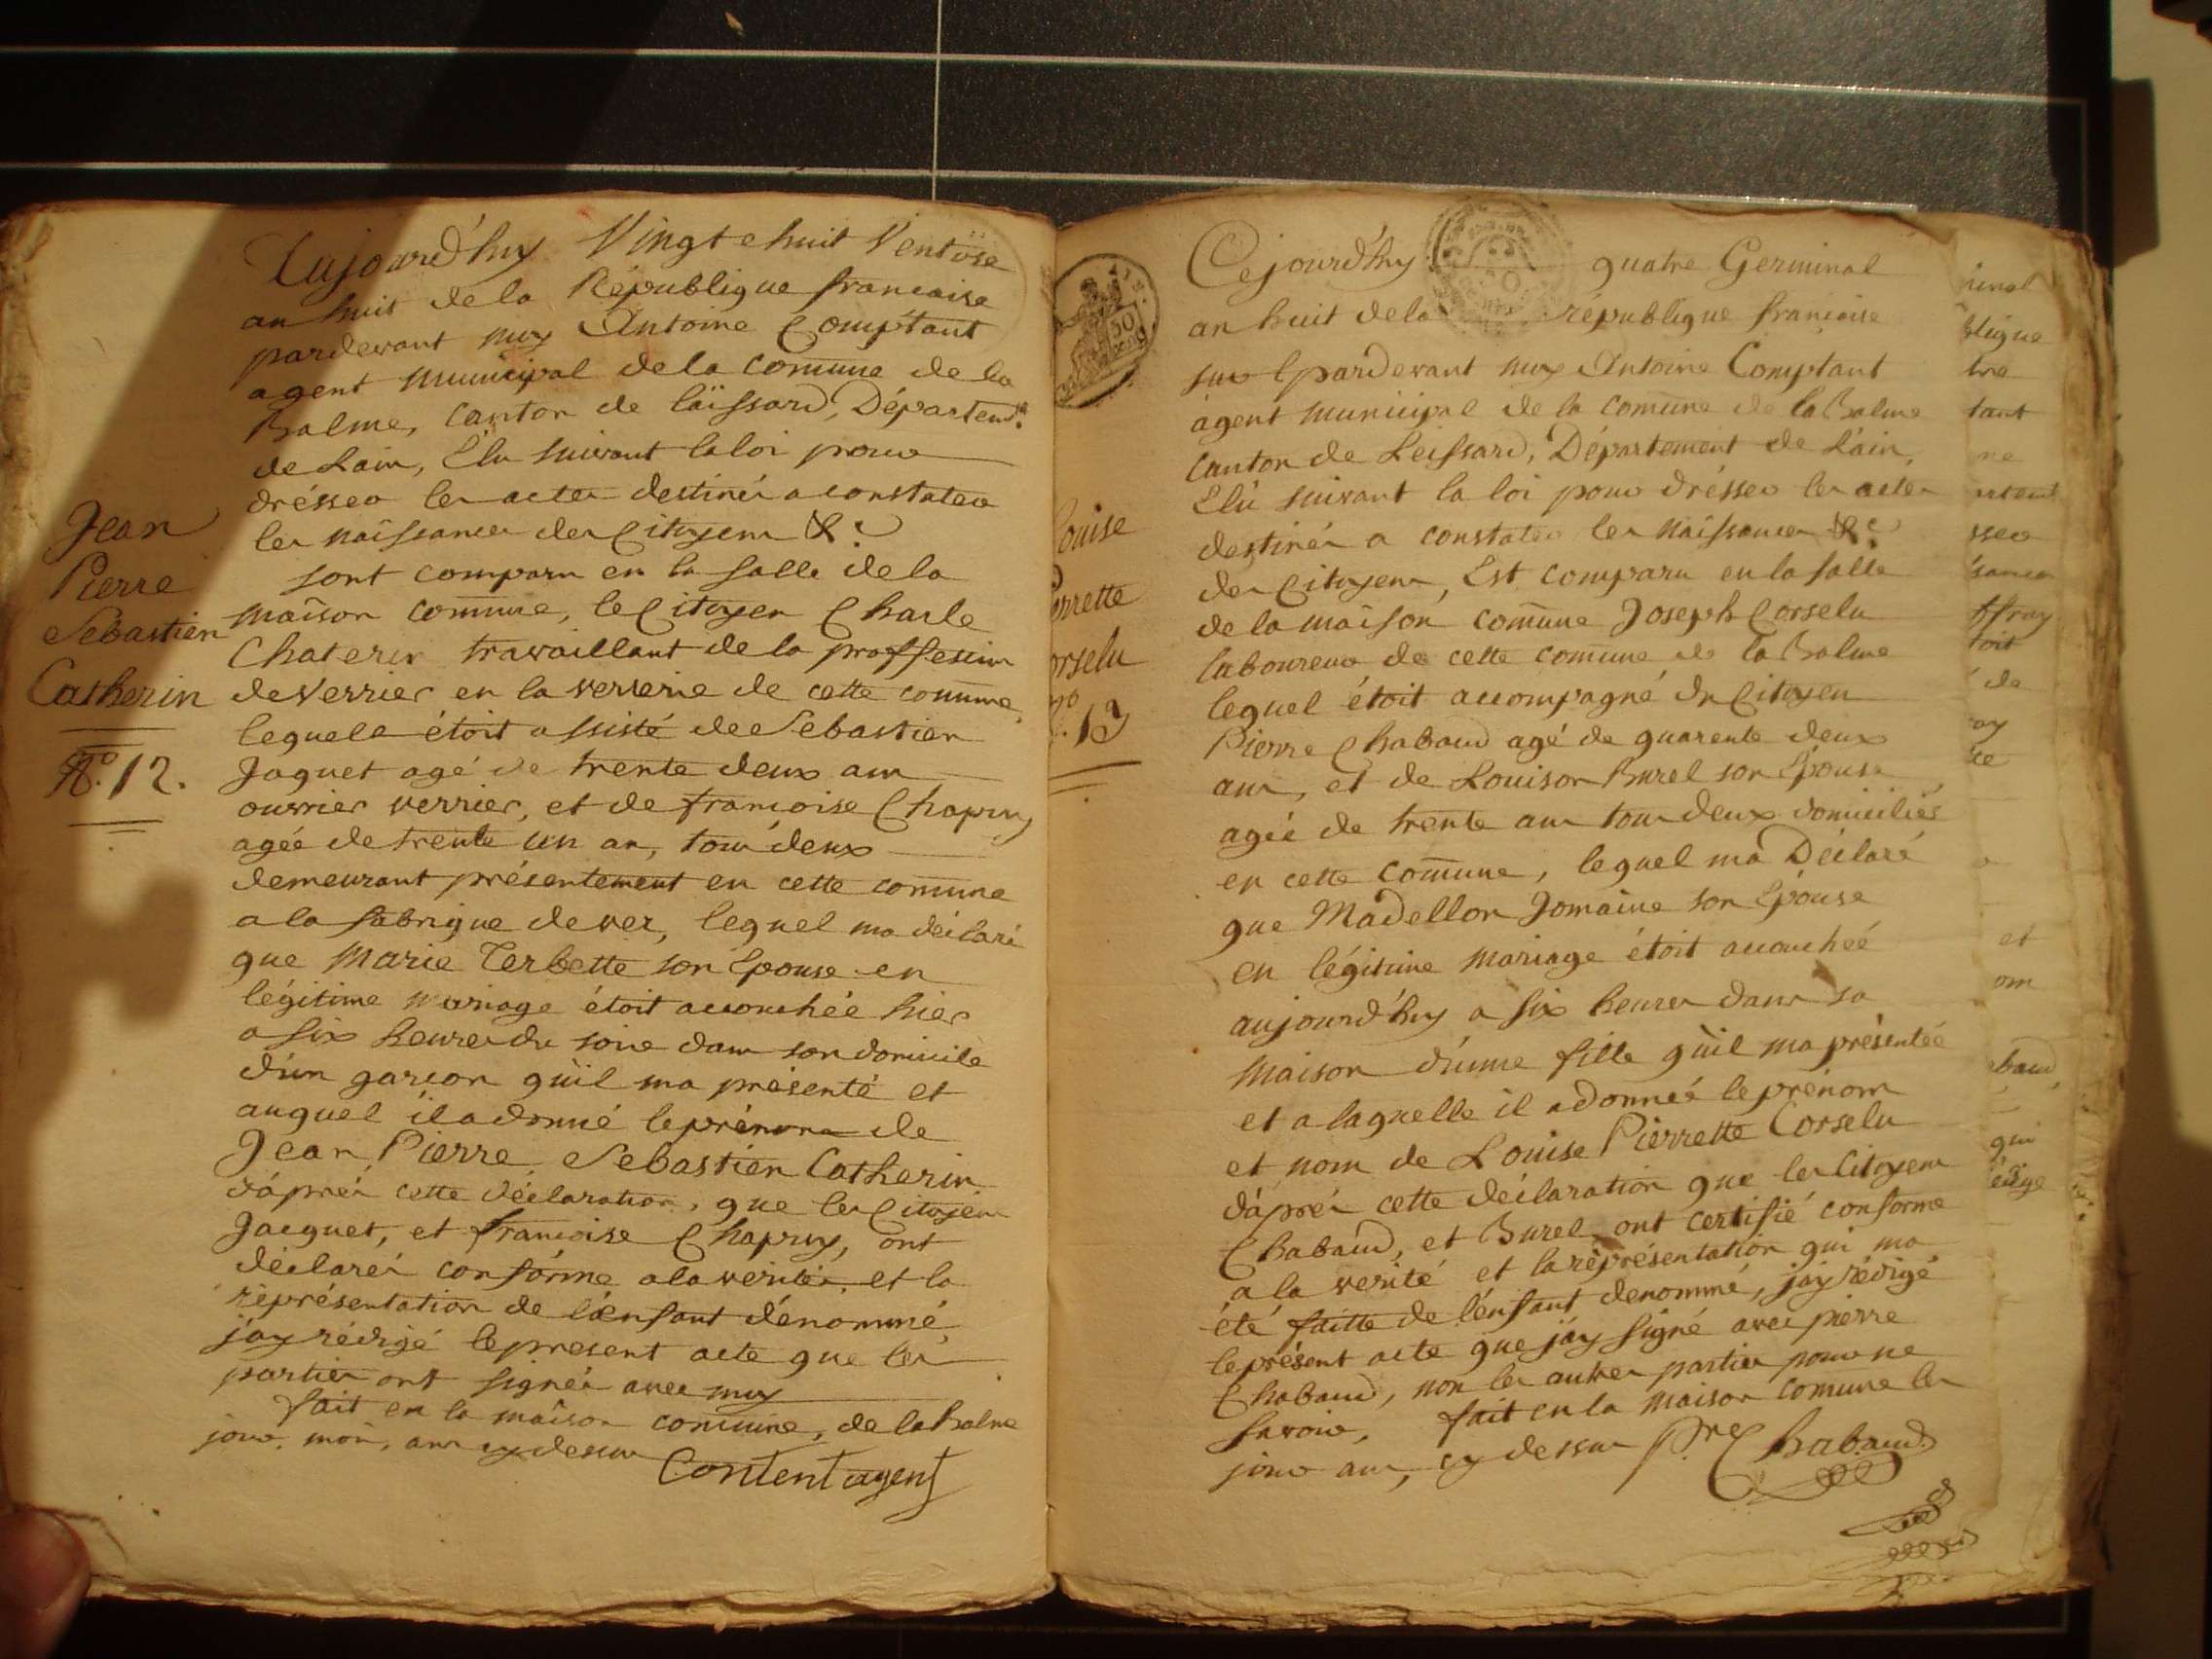 Jean
Pierre
Sébastien
Catherin
N.º 12.
Aujourd'huy Vingt e huit Ventôse
an huit de la République francaise
pardevant moy Antoine Comptant
agent municipal de la comune de la
Balme, Canton de läissard, Départem.t
de Lain, Élu suivant la loi pour
drésser les actes destinés a constater
les naissances des Citoyens &.c
sont comparu en la salle de la
maison comune, le Citoyen Charle
Chaterin travaillant de la proffession
de Verrier en la verrerie de cette comune,
lequele étoit assisté de Sebastien
Jaquet agé de trente deux ans
ouvrier verrier, et de francoise Chapuy
agée de trente un an, tous deux
demeurant présentement en cette comune
a la fabrique de ver, lequel ma déclaré
que Marie Terbette son Epouse en
légitime mariage étoit accouchée hier
a six heures du soire dans son domicile
d'un garcon qu'il ma présenté et
auquel il a donné le prénom de
Jean Pierre Sebastien Catherin
d'áprés cette déclaration, que les Citoyens
Jacquet, et francoise Chapuy, ont
déclarés conforme a la verités, et la
réprésentation de l'enfant dénommé,
jay rédigé le present acte que les
parties ont signés avec moy
fait en la maison comune, de la Balme
jour, mois, ans cy dessus
Content agent
50
Louise
Pierrette
Corselu
N.º 13
Cejourd'huy quatre Germinal
an huit de la république francaise
pardevant moy Antoine Comptant
agent municipal de la comune de la Balme
Canton de Leissard, Département de L'ain,
Élú suivant la loi pour drésser les actes
destinés a constater les naissances &.c
des Citoyens, Est comparu en la salle
de la maison comune Joseph Corselu
laboureur de cette comune de la Balme
lequel étoit accompagné du Citoyen
Pierre Chabaud agé de quarente deux
ans, et de Louison Burel son Epouse
agée de trente ans tous deux domiciliés
en cette comune, lequel ma Déclaré
que Madellon Jomaine son Epouse
en légitime mariage étoit accouchée
aujourd'huy a six heures dans sa
maison d'une fille qu'il ma présentée
et a laquelle il a donnée le prénom
et nom de Louise Pierrette Corselu
d'áprés cette déclaration que les Citoyens
Chabaud, et Burel, ont certifié conforme
a la verité et la réprésentation qui ma
été faitte de l'enfant denommé, jay rédigé
le présent acte que j'ay signé avec pierre
Chabaud, non les autres parties pour ne
savoir, fait en la maison comune les
jour ans, cy dessus P.re Chabaud